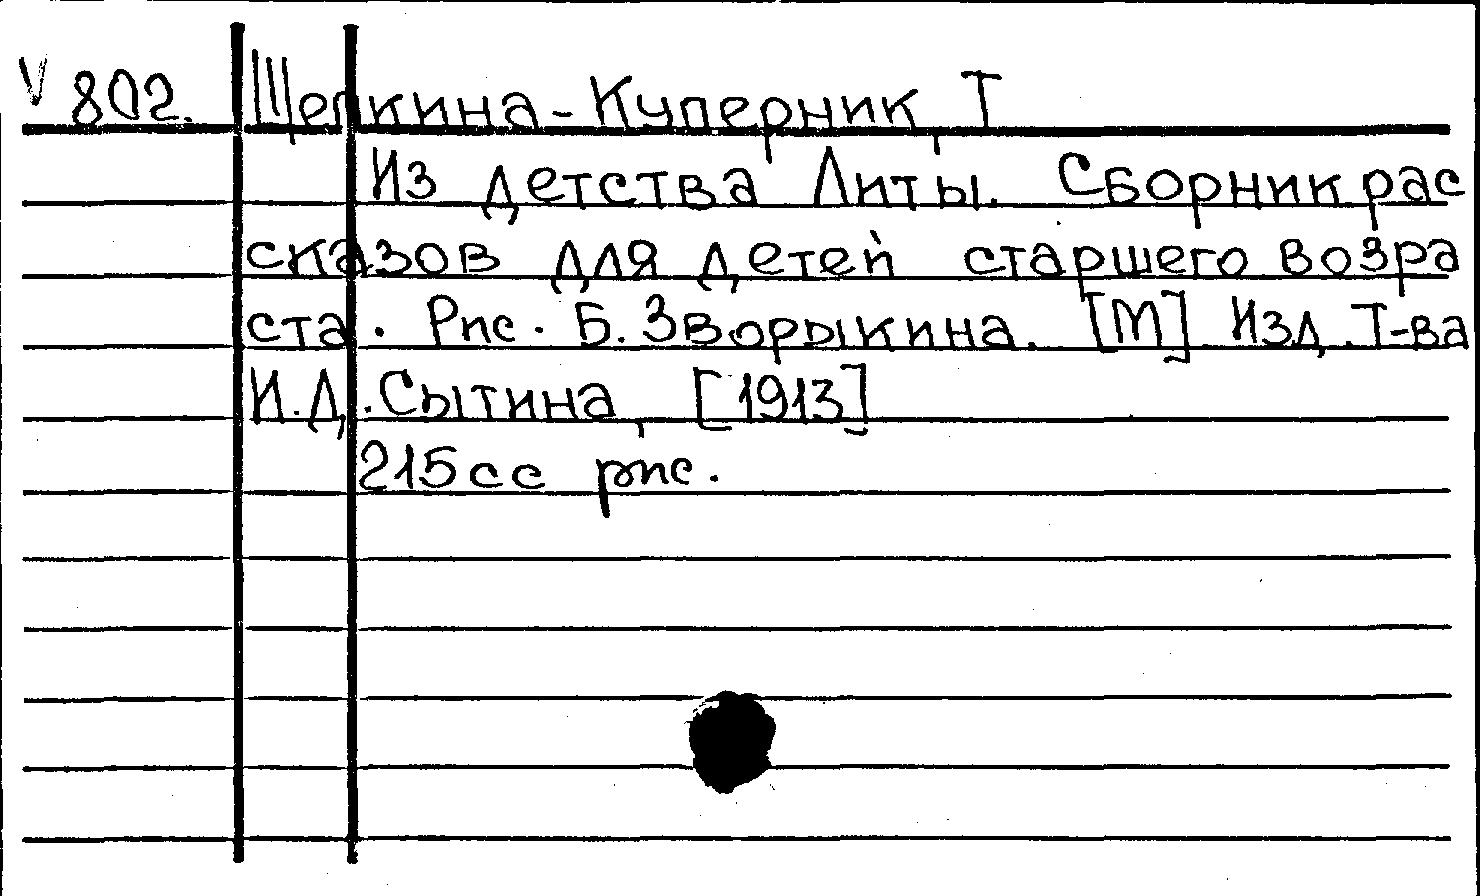 V 802. Щепкина-Куперник, Т
Из детства Литы. Сборник рас
сказов для детей старшего возра
ста. Рис. Б. Зворыкина. [М] Изд. Т-ва
И.Д. Сытина, [1913]
215 сс рис.